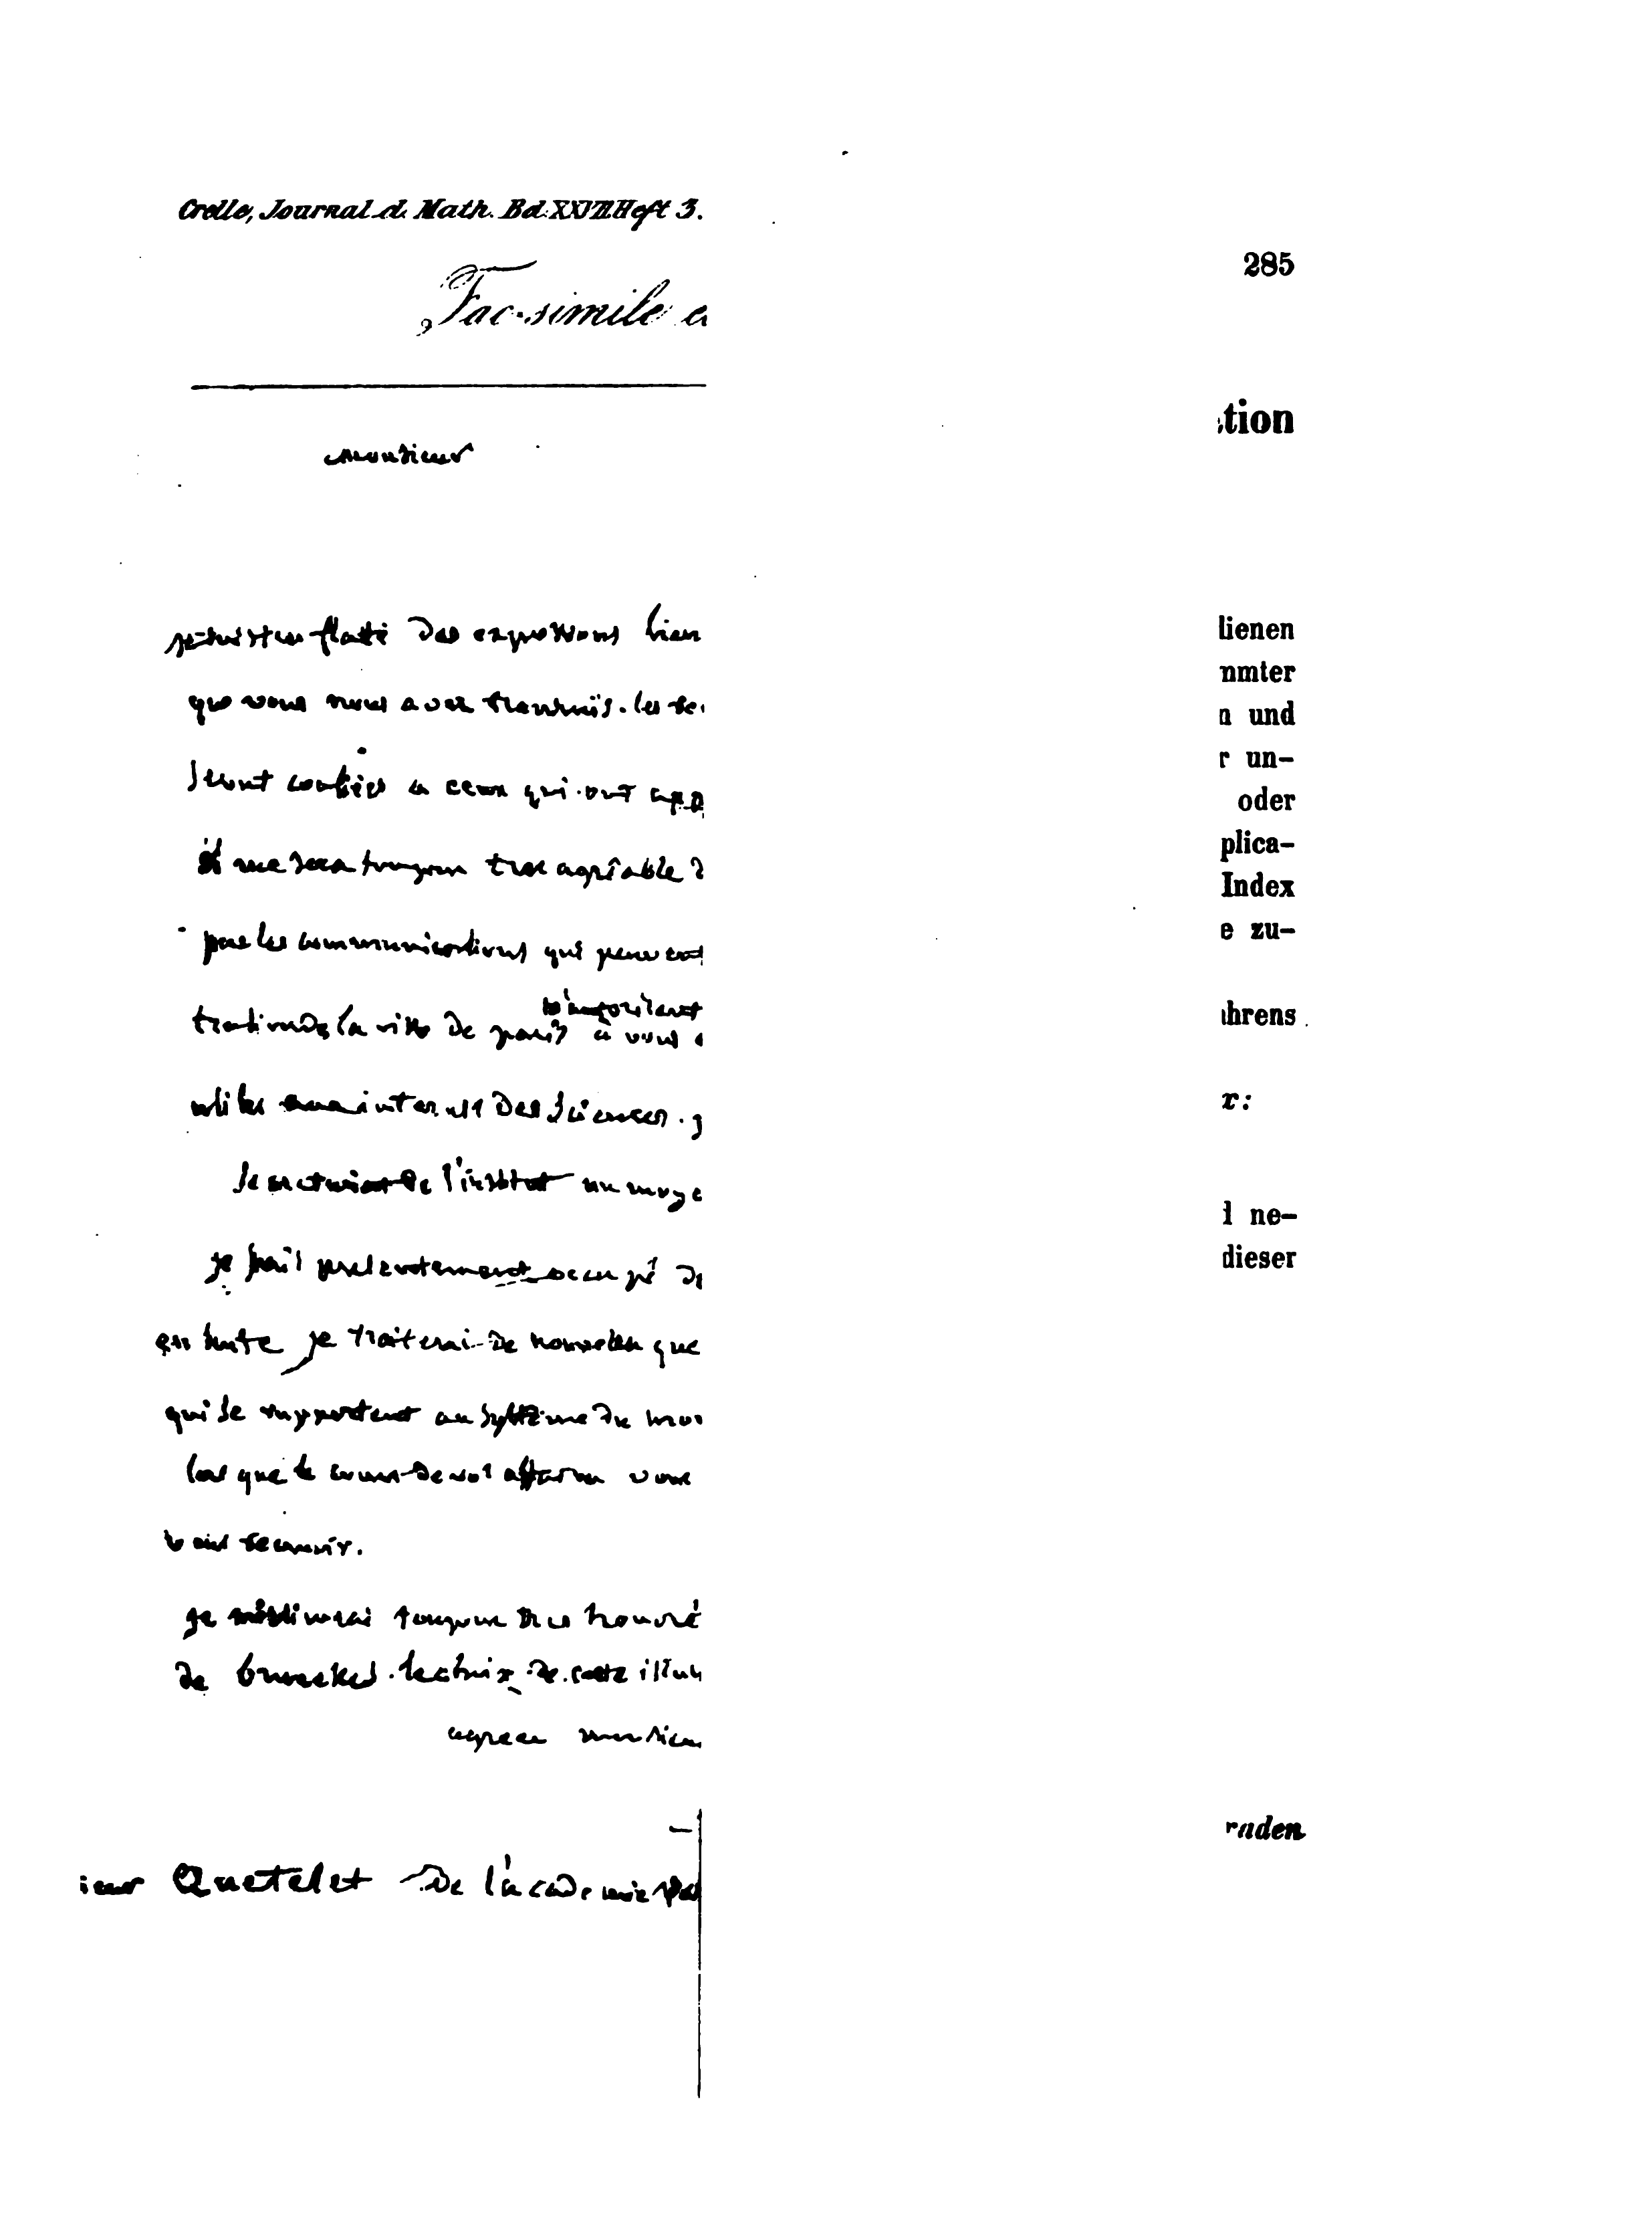 Crelle, Journal d. Math. Bd. XXVII Heft 3.
Fac-simile
Monsieur
flatté des expressions bien
que vous nous avez transmis. les
seront à ceux qui ont app
il me sera toujours tres agréable d
par les communications qui peuvent
m'autorisent
de la ville de paris à vous
utiles aux interests des sciences. j
Secretariat de l'institut un moye
je suis presentement occupé d
ensuite je traiterai de nouvelles que
qui se rapportent au système du mon
lors que le cours de vos affaires vous
vous recevoir.
je m'estimerai toujours tres honoré
de bruxelles. le choix de cette illus
agreer monsieu
ieur Quetelet De l'academie
285
tion
lienen
nmter
n und
r un-
oder
plica-
Index
e zu-
hrens
x:
l ne-
dieser
raden